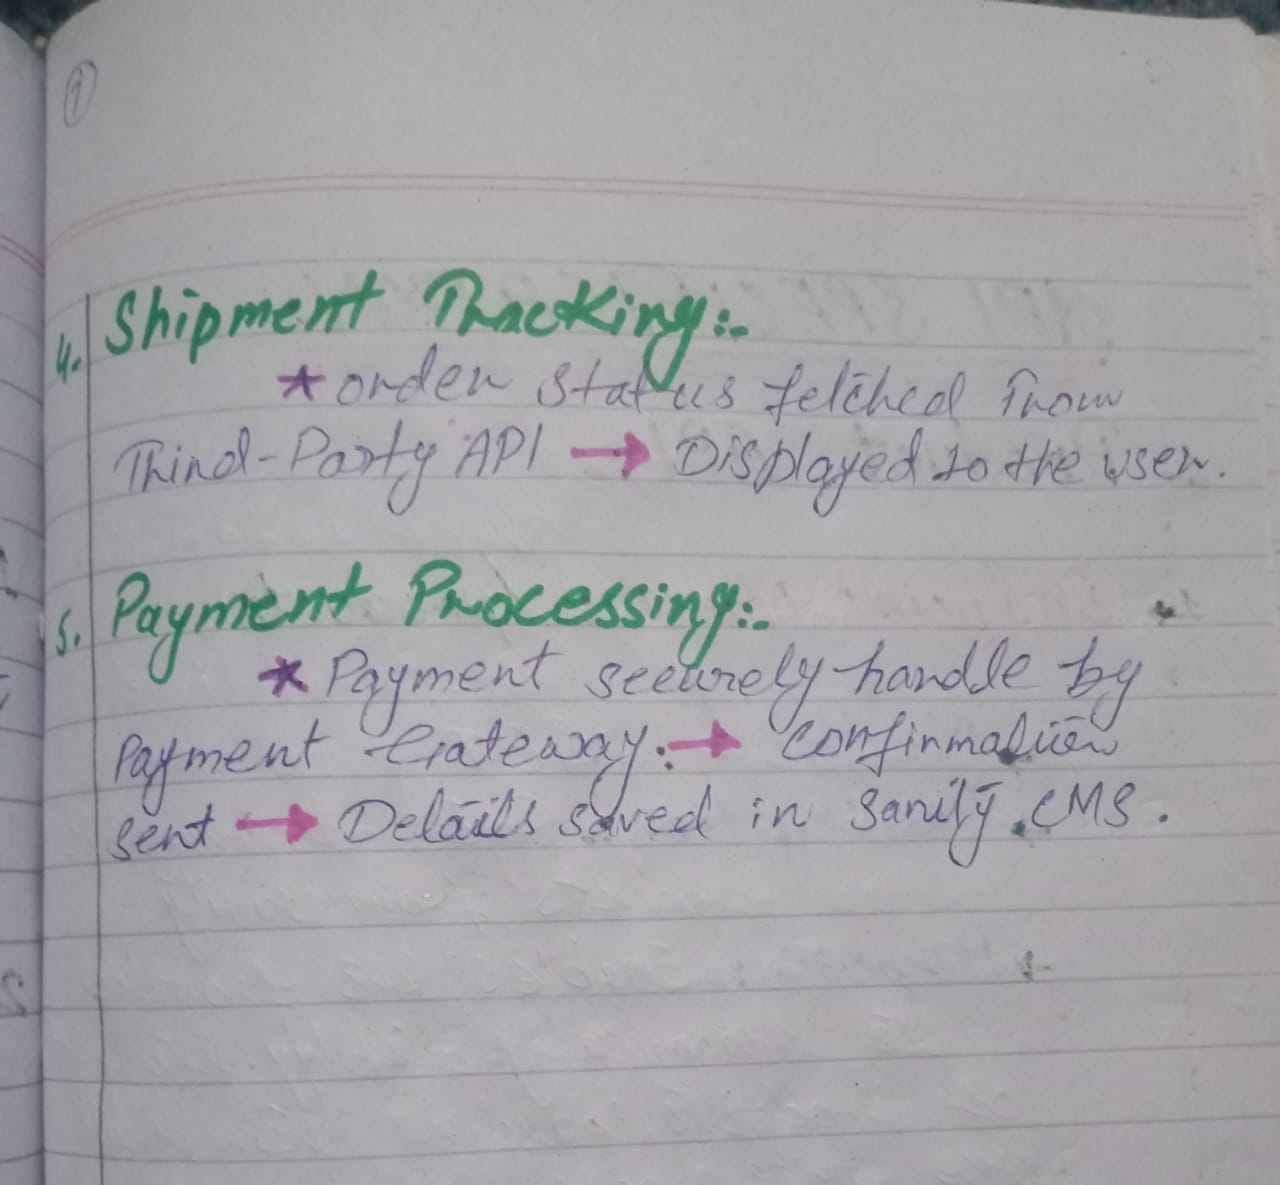 4. Shipment Tracking:-
* order status fetched from
Third-Party API → Displayed to the user.
5. Payment Processing:-
* Payment securely handle by
Payment Gateway. → confirmation
sent → Details saved in Sanity CMS.